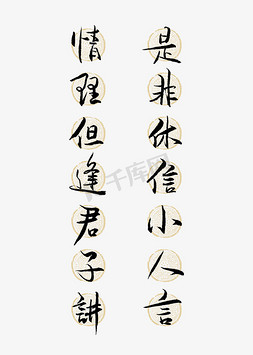 是非休信小人言
情理但逢君子講
千库网